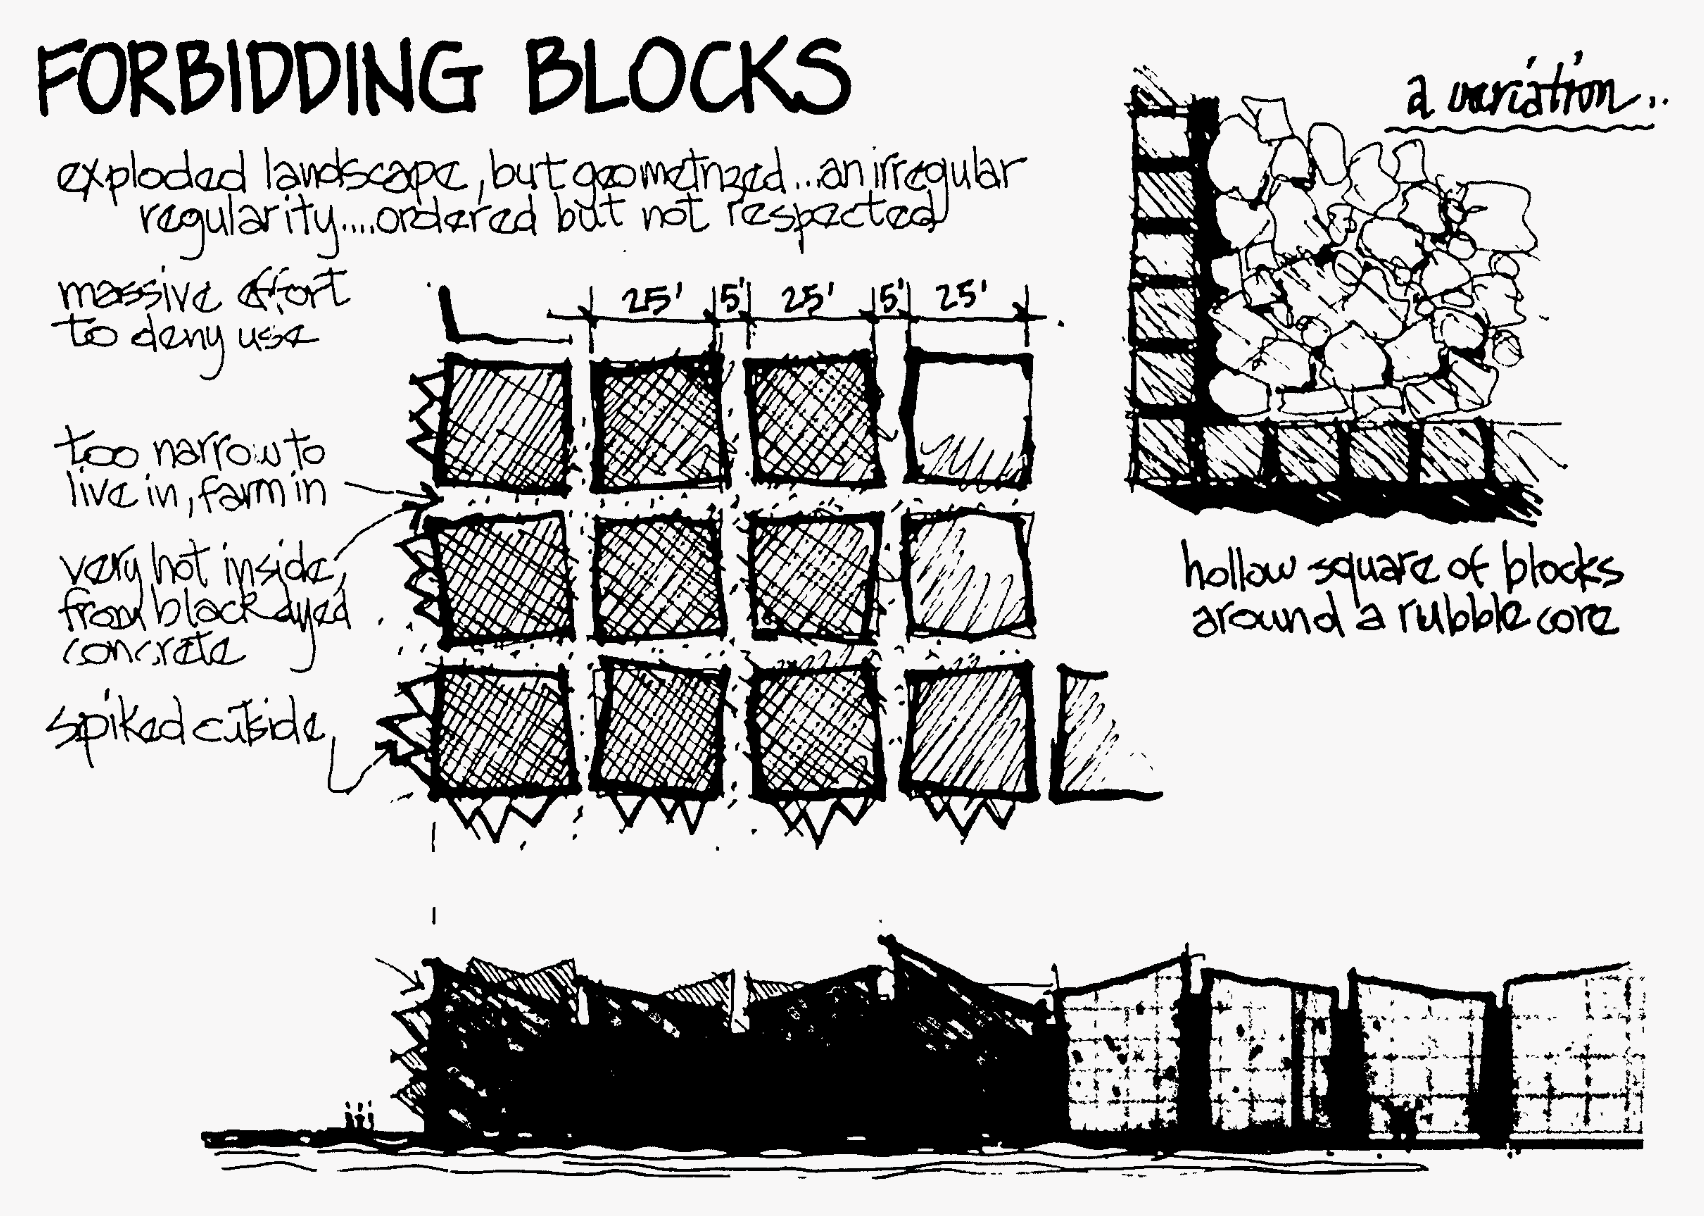 FORBIDDING BLOCKS
exploded landscape, but geometrized...an irregular
regularity....ordered but not respected
massive effort
to deny use
25' 5' 25' 5' 25'
too narrow to
live in, farm in
very hot inside,
from black dyed
concrete
spiked outside
a variation...
hollow square of blocks
around a rubble core